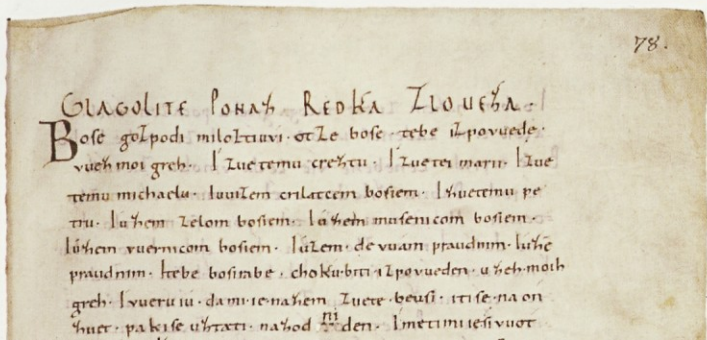 78.
GLAGOLITE PONAZ REDKA ZLOUEZA.
Bose gozpodi miloztiuvi. otze bose. tebe izpovuede.
vuez moi greh. I zuetemu creztu. I zuetei marii. I zue
temu michaelu. I uuizem crilatcem bosiem. I zuetemu pe
tru. I usem zelom bosiem. I usem musenicom bosiem.
I usem vuernicom bosiem. I uzem. devuam praudnim. I uze
praudnim. I tebe bosirabe. choku. biti. izpovueden. uzeh. moih
greh. I vueruiu. da mi. ie. nazem zuete. beusi. iti se. na on
zuet. pakise uztati. nazodni den. I metimi iesivuot